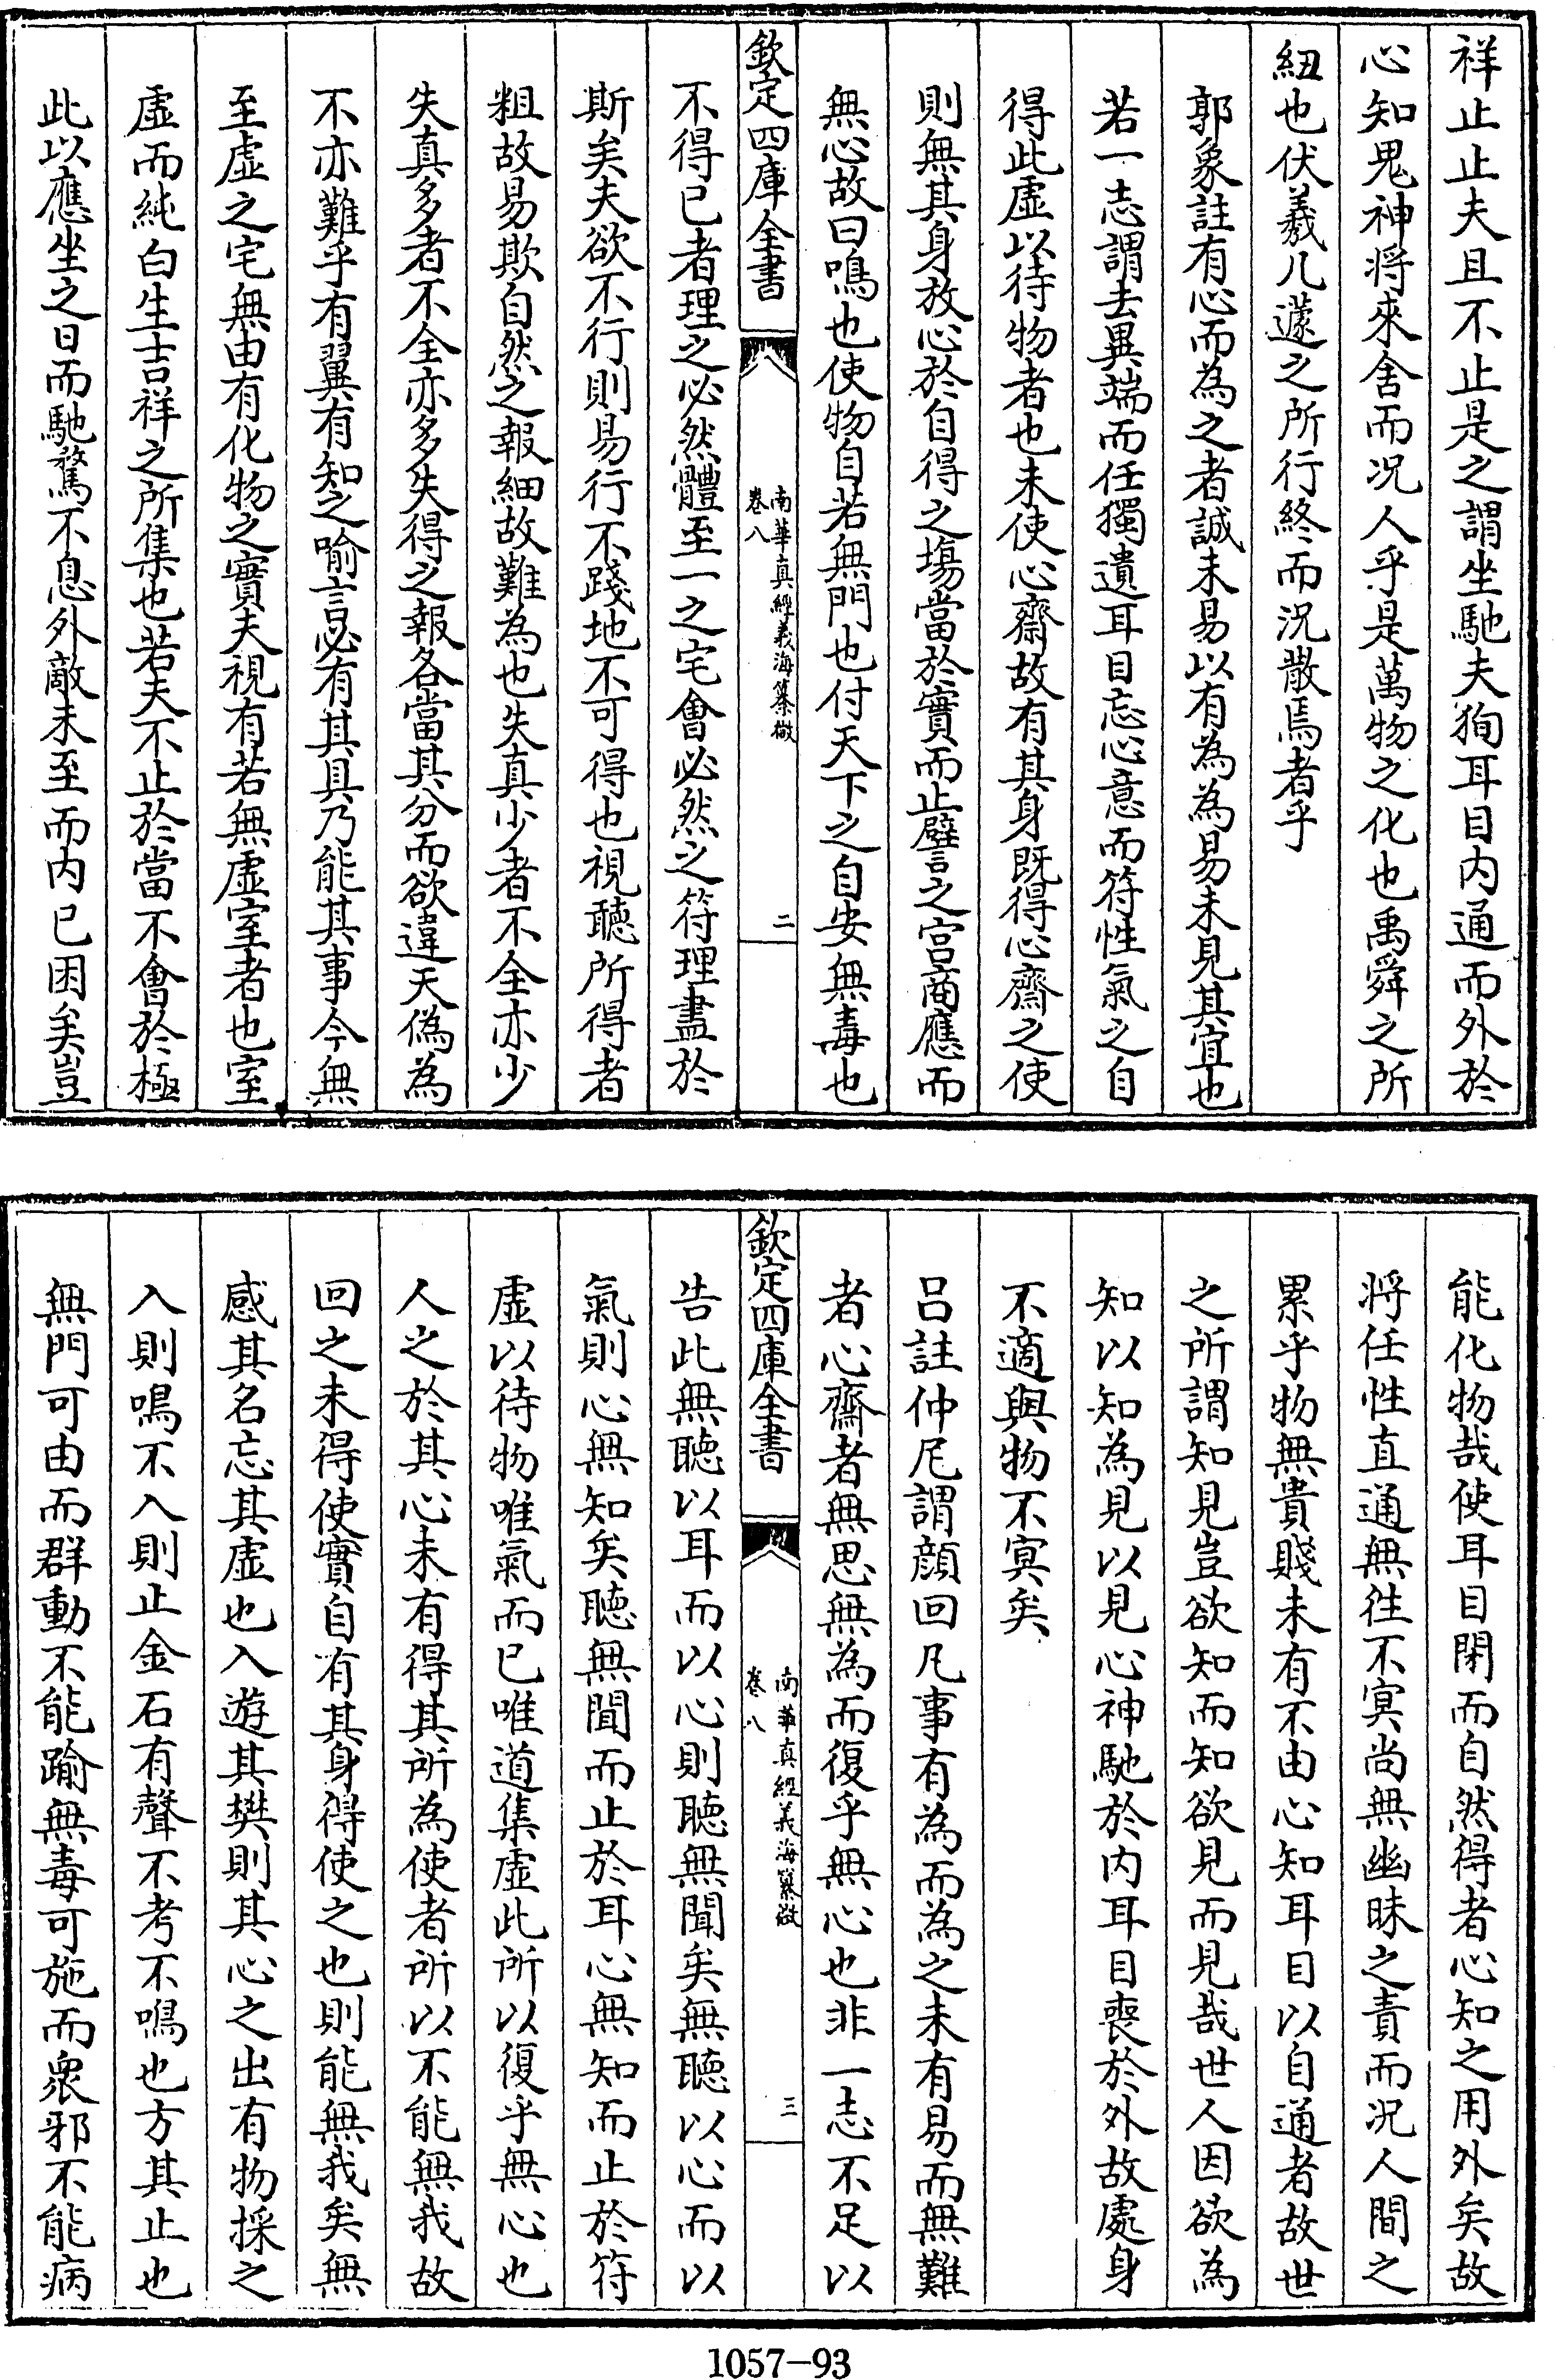 祥止止夫且不止是之謂坐馳夫狥耳目内通而外於
心知鬼神將來舍而况人乎是萬物之化也禹舜之所
紐也伏羲几蘧之所行終而況散焉者乎
郭象註有心而為之者誠未易以有為為易未見其宜也
若一志謂去異端而任獨遺耳目忘心意而符性氣之自
得此虛以待物者也未使心齋故有其身既得心齋之使
則無其身放心於自得之場當於實而止譬之宫商應而
無心故曰鳴也使物自若無門也付天下之自安無毒也
欽定四庫全書
南華真經義海纂微
卷八
二
不得已者理之必然體至一之宅會必然之符理盡於
斯矣夫欲不行則易行不踐地不可得也視聽所得者
粗故易欺自然之報細故難為也失真少者不全亦少
失真多者不全亦多失得之報各當其分而欲違天偽為
不亦難乎有翼有知之喻言必有其具乃能其事今無
至虛之宅無由有化物之實夫視有若無虛室者也室
虛而純白生吉祥之所集也若夫不止於當不會於極
此以應坐之日而馳騖不息外敵未至而内已困矣豈
能化物哉使耳目閉而自然得者心知之用外矣故
將任性直通無往不冥尚無幽昧之責而况人間之
累乎物無貴賤未有不由心知耳目以自通者故世
之所謂知見豈欲知而知欲見而見哉世人因欲為
知以知為見以見心神馳於内耳目喪於外故處身
不適與物不冥矣
吕註仲尼謂顔回凡事有為而為之未有易而無難
者心齋者無思無為而復乎無心也非一志不足以
欽定四庫全書
南華真經義海纂微
卷八
三
告此無聽以耳而以心則聽無聞矣無聽以心而以
氣則心無知矣聽無聞而止於耳心無知而止於符
虛以待物唯氣而已唯道集虛此所以復乎無心也
人之於其心未有得其所為使者所以不能無我故
回之未得使實自有其身得使之也則能無我矣無
感其名忘其虛也入遊其樊則其心之出有物採之
入則鳴不入則止金石有聲不考不鳴也方其止也
無門可由而群動不能踰無毒可施而衆邪不能病
1057-93